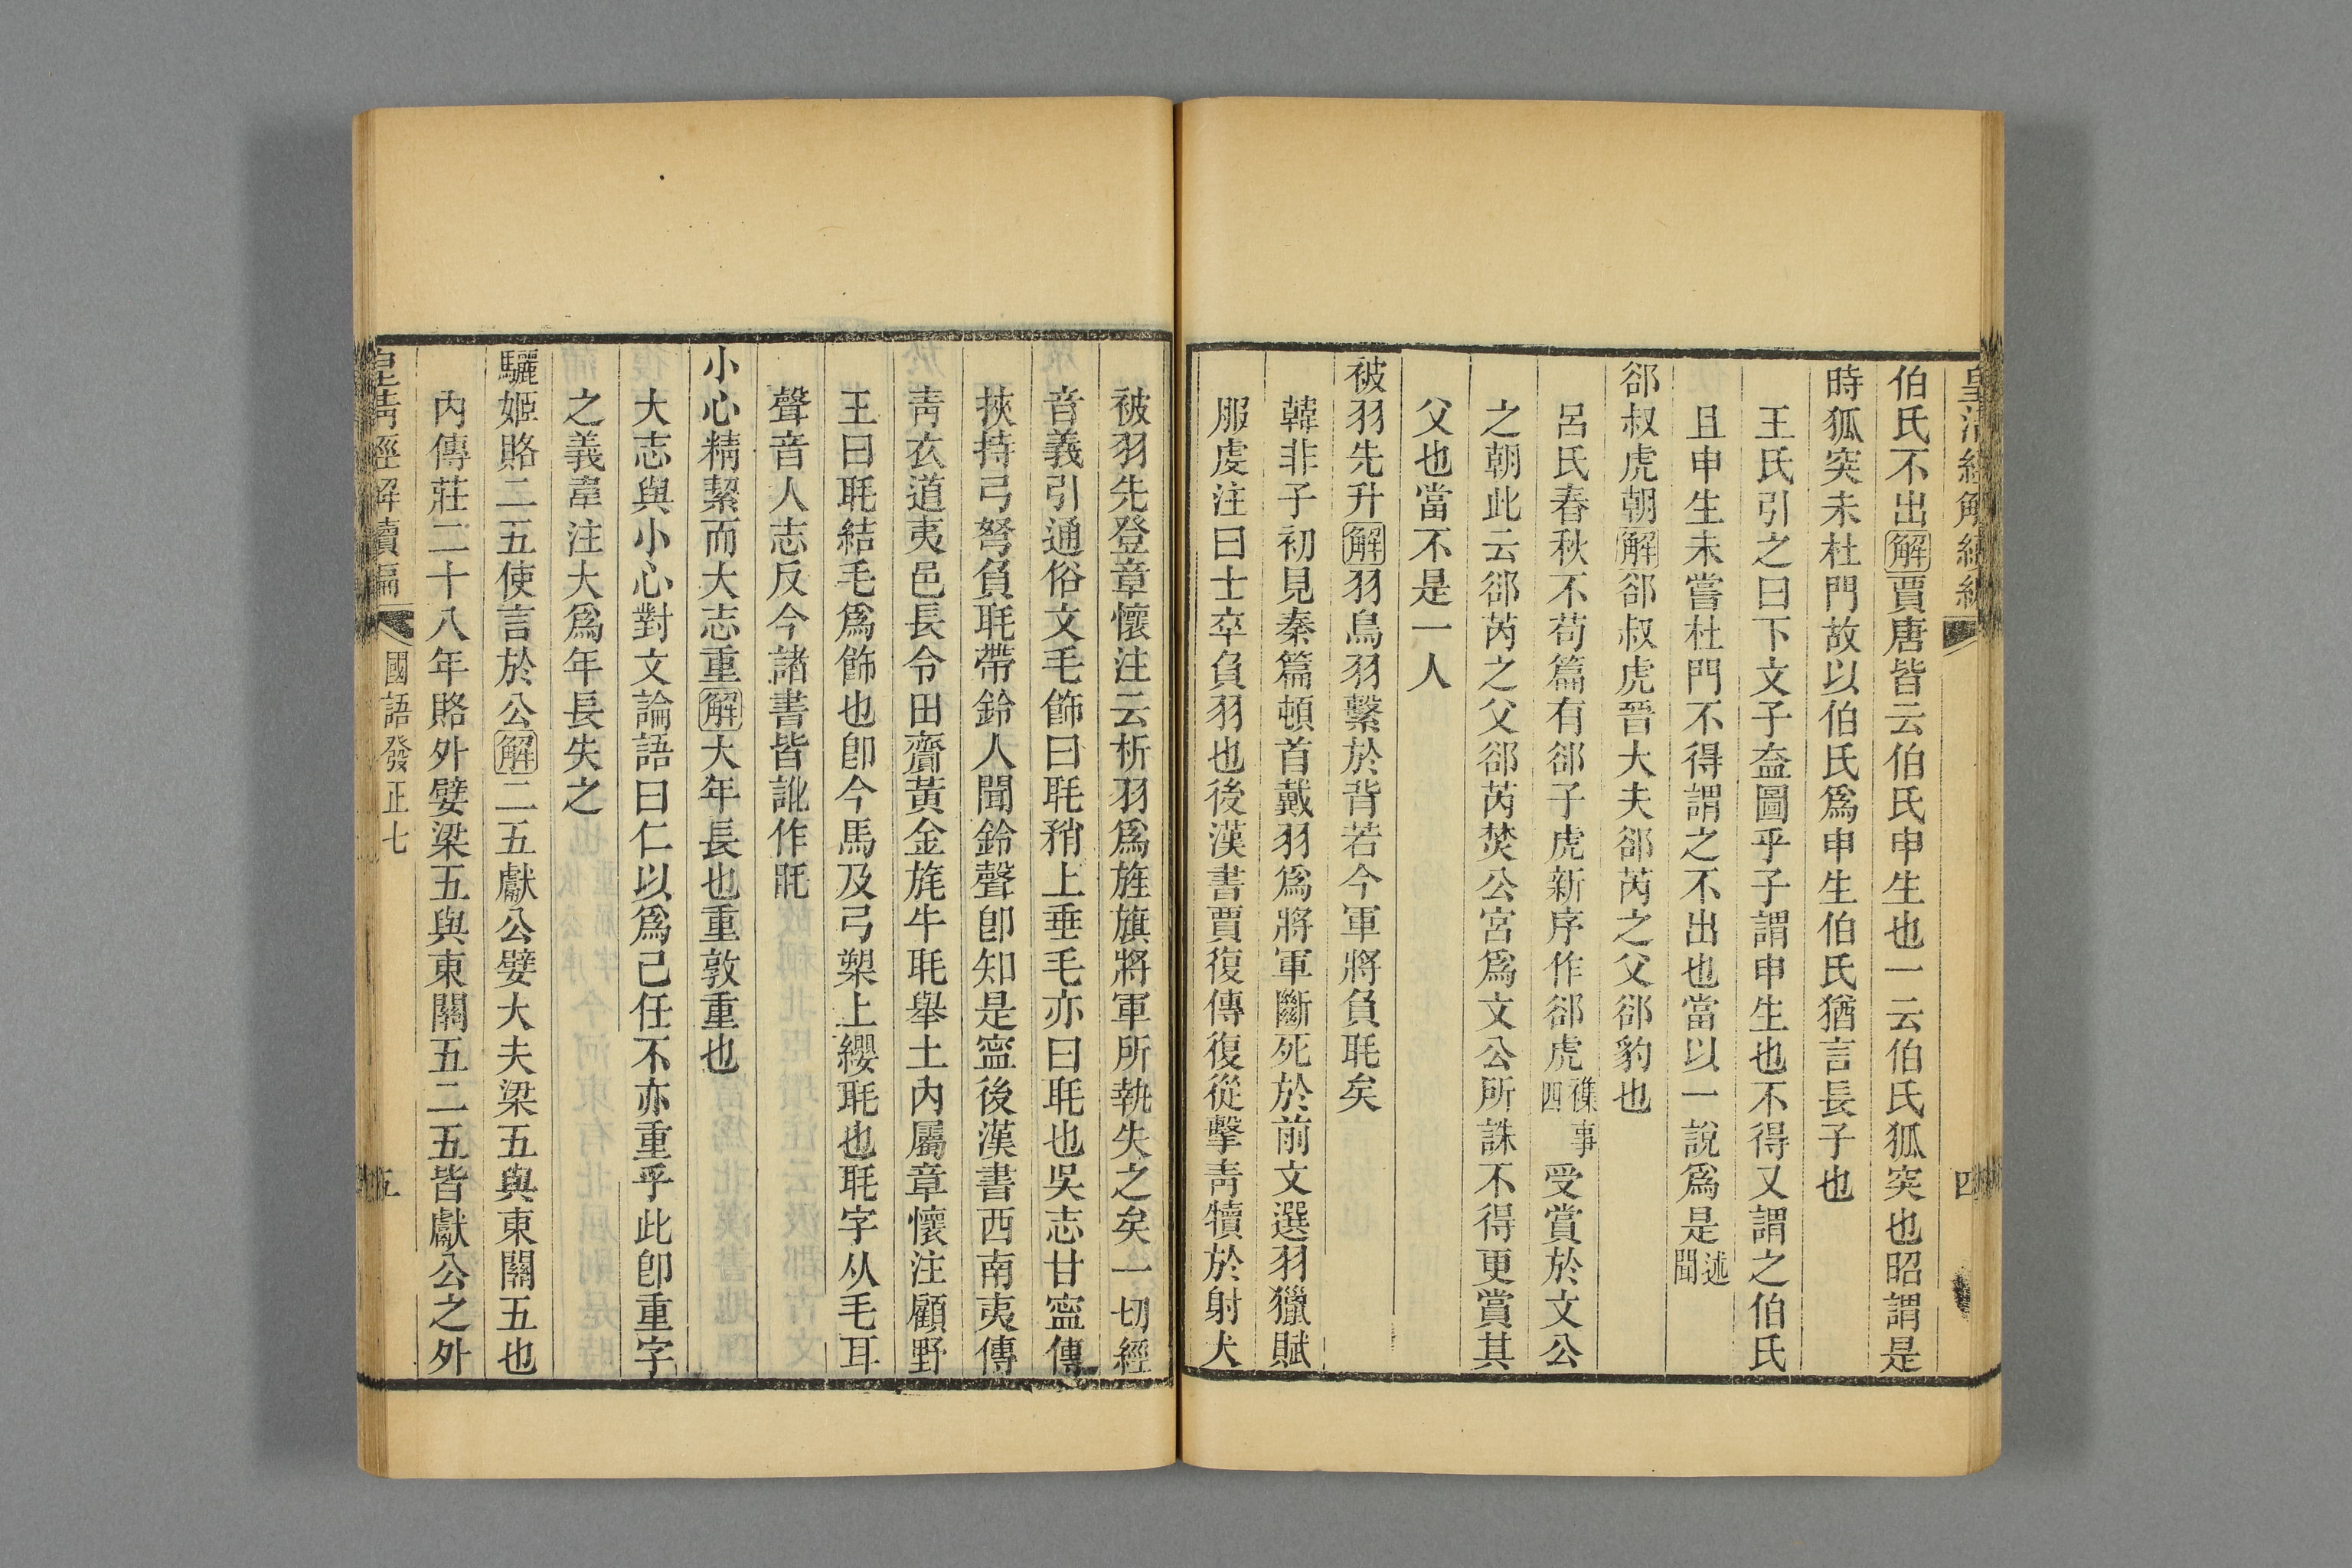 皇清經解續編
四
伯氏不出解賈唐皆云伯氏申生也一云伯氏狐突也昭謂是
時狐突未杜門故以伯氏爲申生伯氏猶言長子也
王氏引之曰下文子盍圖乎子謂申生也不得又謂之伯氏
且申生未嘗杜門不得謂之不出也當以一說爲是述聞
郤叔虎朝解郤叔虎晉大夫郤芮之父郤豹也
呂氏春秋不苟篇有郤子虎新序作郤虎襍事四受賞於文公
之朝此云郤芮之父郤芮焚公宮爲文公所誅不得更賞其
父也當不是一人
被羽先升解羽鳥羽繫於背若今軍將負毦矣
韓非子初見秦篇頓首戴羽爲將軍斷死於前文選羽獵賦
服虔注曰士卒負羽也後漢書賈復傳復從擊靑犢於射犬
被羽先登章懷注云析羽爲旌旗將軍所執失之矣一切經
音義引通俗文毛飾曰毦矟上垂毛亦曰毦也吳志甘寍傳
挾持弓弩負毦帶鈴人聞鈴聲卽知是寍後漢書西南夷傳
靑衣道夷邑長令田齎黃金旄牛毦舉土內屬章懷注顧野
王曰毦結毛爲飾也卽今馬及弓槊上纓毦也毦字从毛耳
聲音人志反今諸書皆訛作毦
小心精絜而大志重解大年長也重敦重也
大志與小心對文論語曰仁以爲己任不亦重乎此卽重字
之義韋注大爲年長失之
驪姬賂二五使言於公解二五獻公嬖大夫梁五與東關五也
內傳莊二十八年賂外嬖梁五與東關五二五皆獻公之外
皇淸經解續編
國語發正七
五